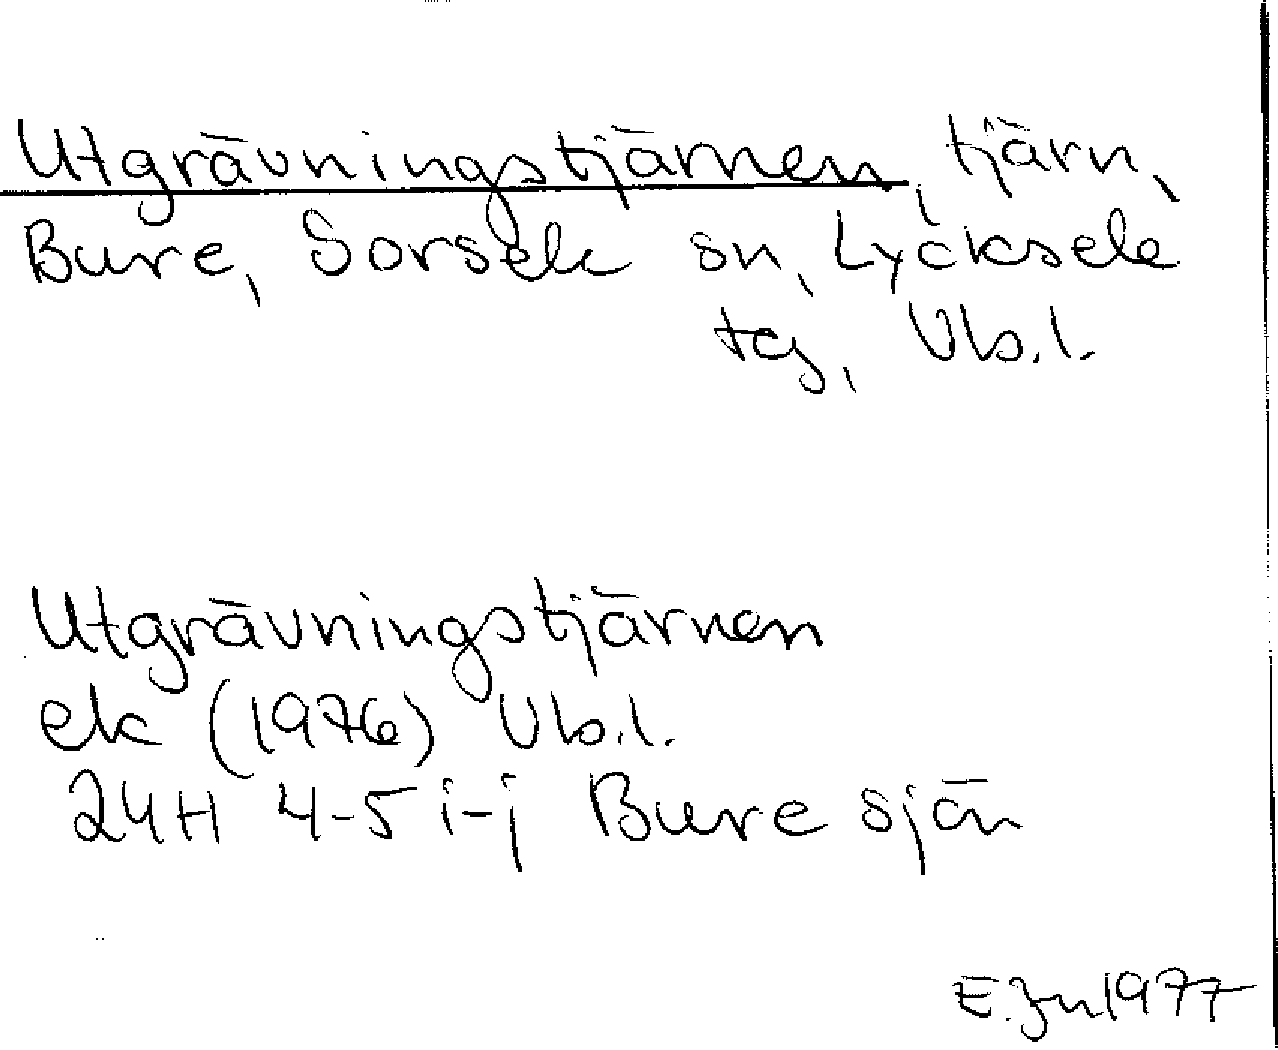 Utgrävningstjärnen, tjärn,
Bure, Sorsele sn, Lycksele
tg, Vb.l.
Utgrävningstjärnen
ek (1976) Vb.l.
24H 4-5 i-j Bure sjön
E. Jn 1977